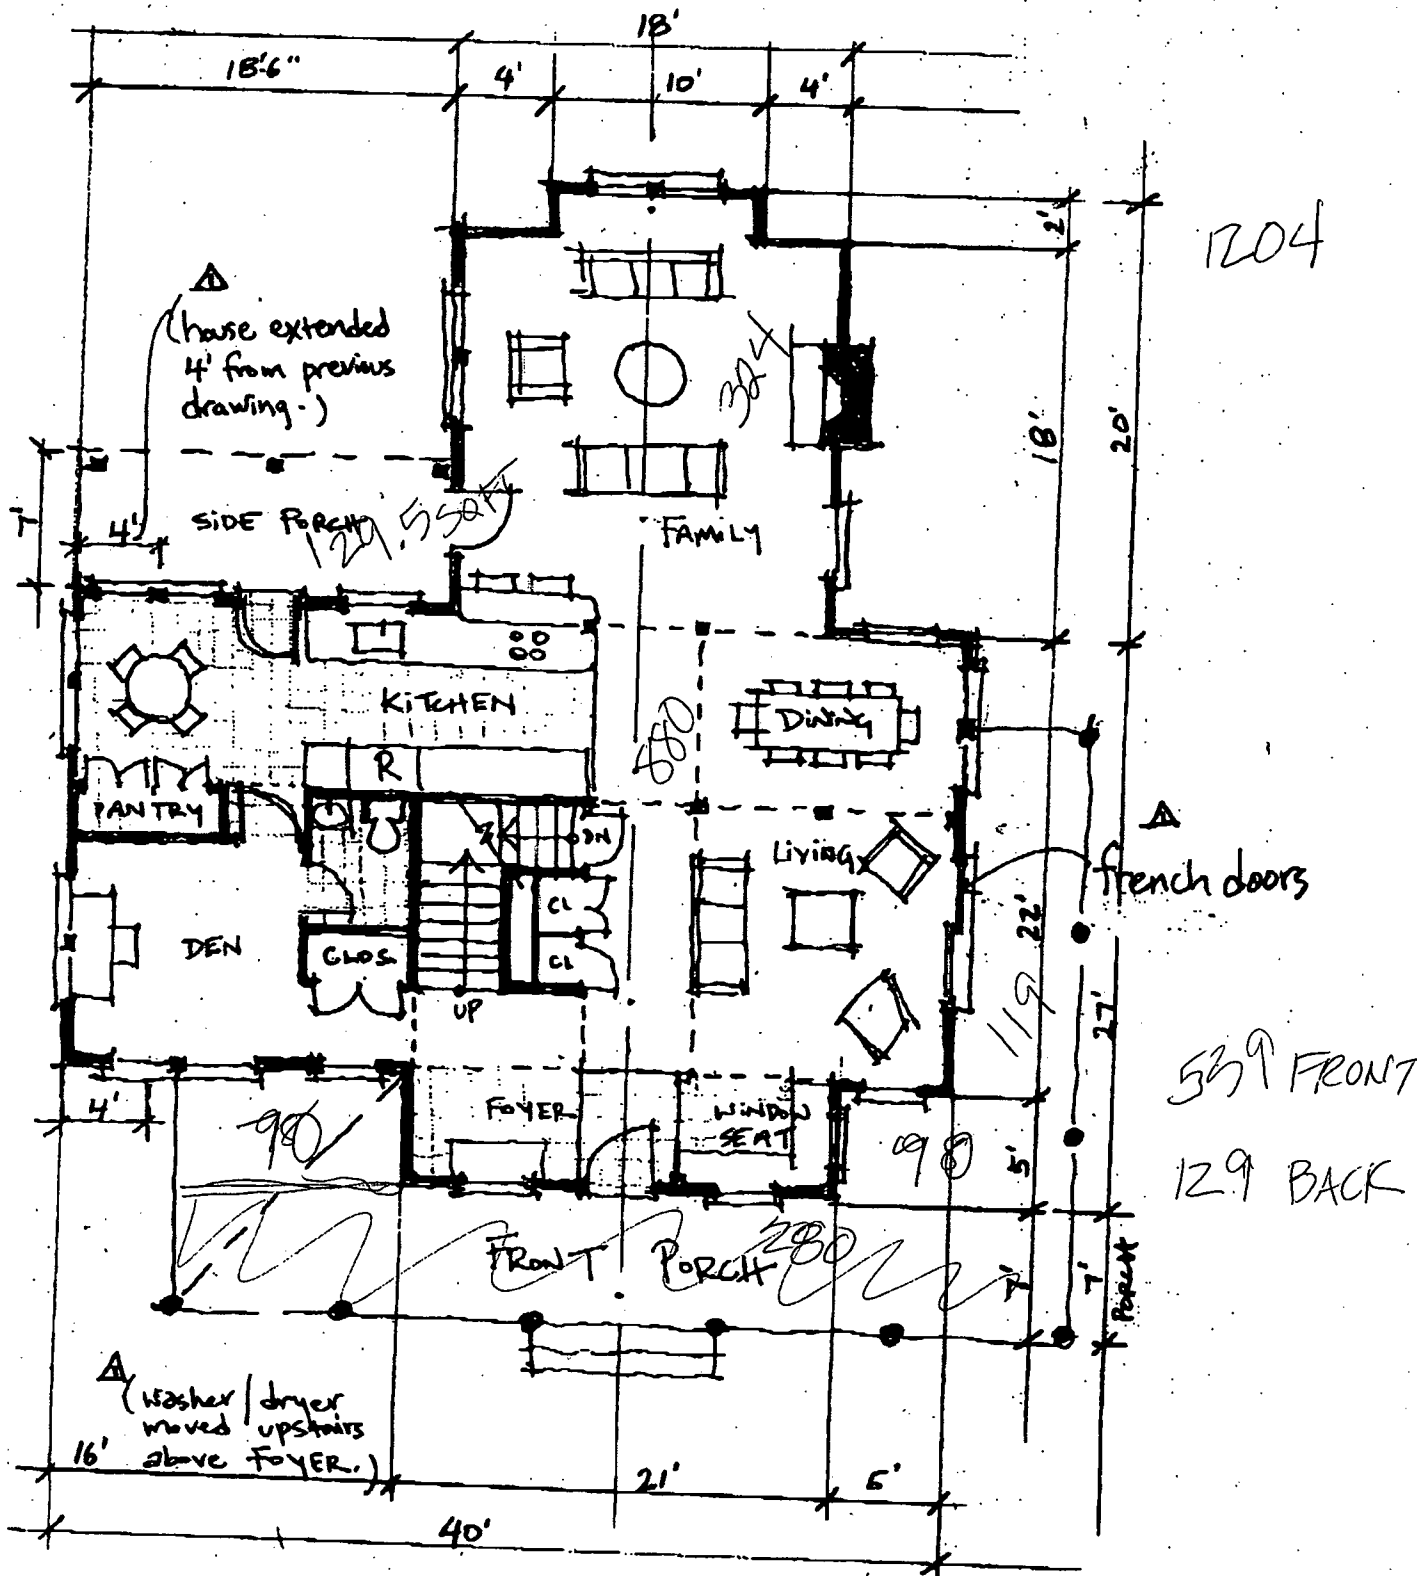 18'
18'6"
4'
10'
4'
2'
1204
(house extended
4' from previous
drawing.)
324
18'
20'
7'
4'
SIDE PORCH
129.5 SQFT
FAMILY
KITCHEN
DINING
880
R
PANTRY
DN
LIVING
french doors
CL
DEN
CLOS.
22'
CL
UP
119
27'
539 FRONT
4'
98
FOYER
WINDOW
SEAT
98
5'
129 BACK
FRONT PORCH
280
7'
7'
PORCH
(washer/dryer
moved upstairs
above FOYER.)
16'
21'
5'
40'